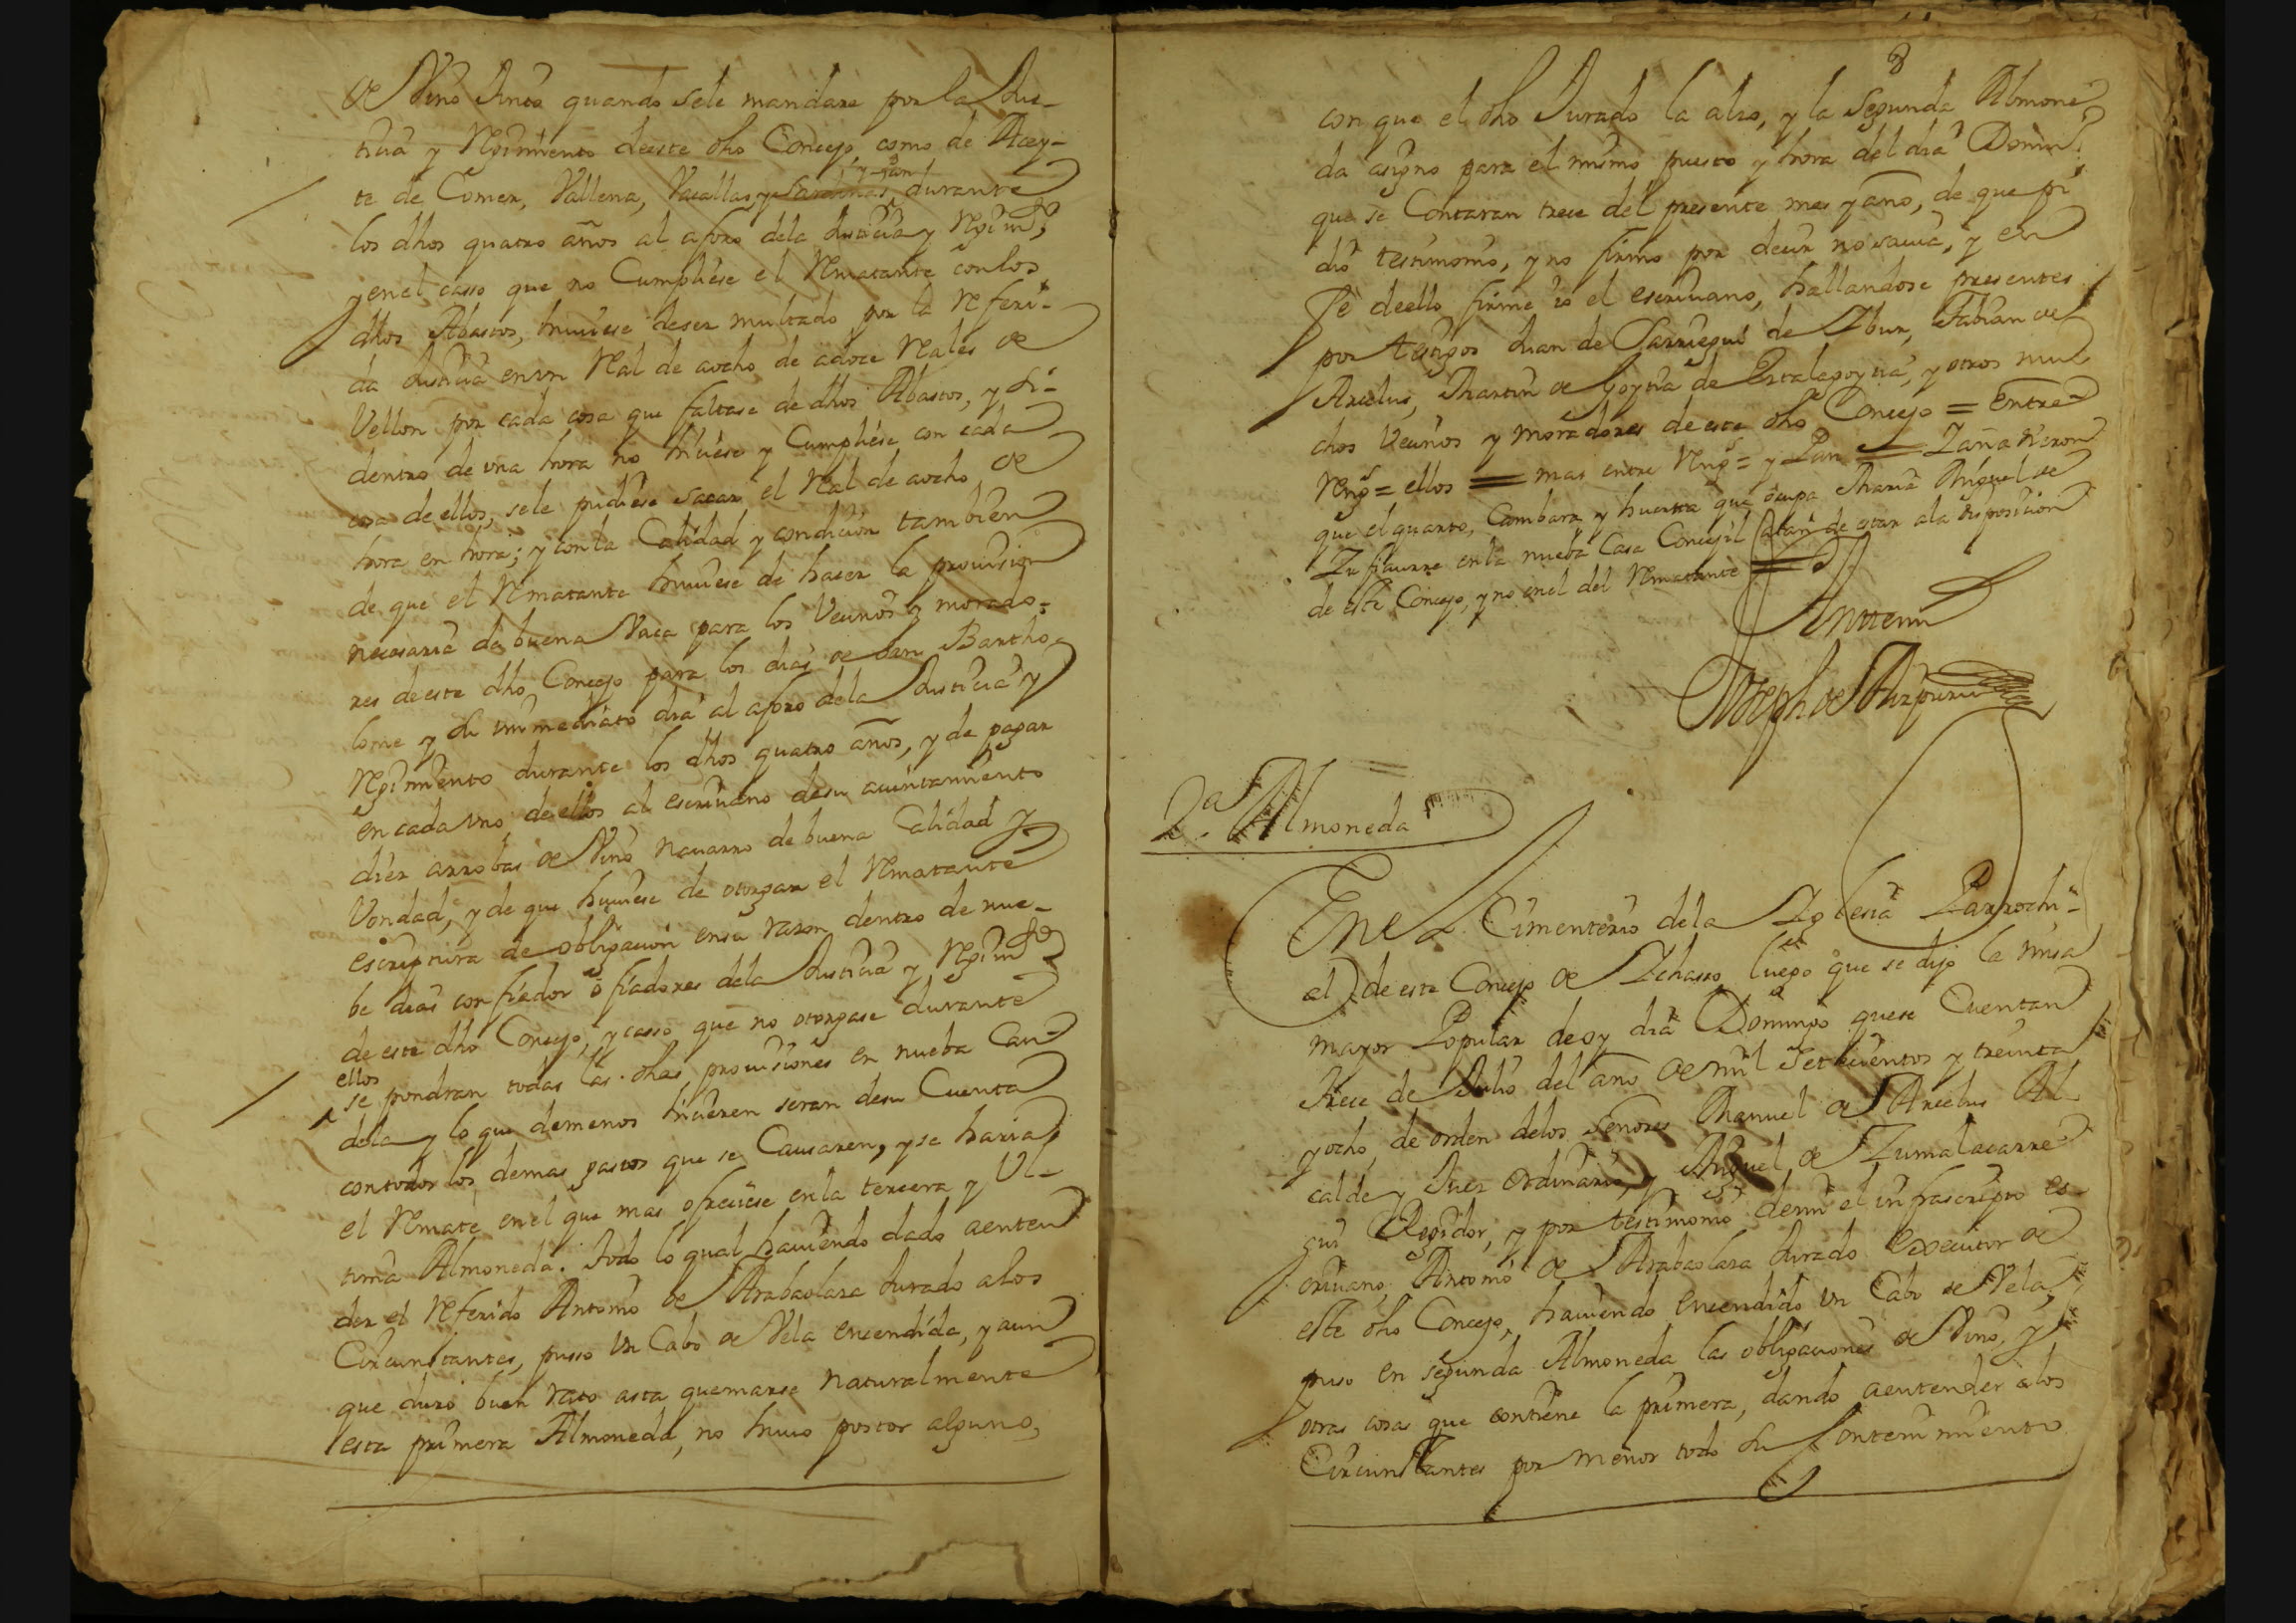 de Vino Tinto quando se le mandare por la Jus-
ticia y Regimiento de este dho Concejo, como de Azey-
te de Comer, Vallena, Vacallao, y Sardinas y Pan durante
los dhos quatro años al aforo de la Justicia y Regimto,
y en el casso que no Cumpliese el Rematante con los
dhos Abastos, huuiese de ser multado por la referi-
da Justicia en un Real de a ocho de a doce Reales de
Vellon por cada cosa que faltase de dhos Abastos, y si
dentro de una hora no hiciese y Cumpliese con cada
cosa de ellos, se le pudiese sacar el Real de a ocho de
hora en hora; y con la Calidad y condicion tambien
de que el Rematante huuiese de hacer la prouision
necesaria de buena Vaca para los Vecinos y morado-
res de este dho Concejo para los dias de San Bartho-
lome y su immediato dia al aforo de la Justicia y
Regimiento durante los dhos quatro años, y de pagar
en cada uno de ellos al escriuano de su aiuntamiento
diez arrobas de Vino nauarro de buena Calidad y
Vondad, y de que huuiese de otorgar el Rematante
escriptura de obligacion en su razon dentro de nue-
be dias con fiador o fiadores de la Justicia y Regimto
de este dho Concejo, y casso que no otorgase durante
ellos
se pondran todas las dhas prouisiones en nueba Can
dela y lo que de menos hicieren seran de su Cuenta
con todos los demas gastos que se Causaren, y se haria
el Remate en el que mas ofreciese en la tercera y Ul-
tima Almoneda. Todo lo qual hauiendo dado a enten
der el referido Antonio de Arabaolaza Jurado a los
Circunstantes, pusso un Cabo de Vela encendida, y aun
que duro buen rato asta quemarse naturalmente
esta primera Almoneda, no huuo postor alguno,
8
con que el dho Jurado la alzo, y la Segunda Almone
da asigno para el mismo puesto y hora del dia Domingo
que se Contaran trece del presente mes y año, de que pi
dio testimonio, y no firmo por decir no sauia, y en
fe de ello firme io el escriuano, hallandose presentes
por testigos Juan de Sarriegui de Ibur, Fabian de
Arcelus, Martin de Goytia de Estalagoytia, y otros mu
chos Vecinos y moradores de este dho Concejo = Entre
Rengs = ellos = mas entre Rengs = y Pan =
que el quarto, Cambara y huerta que ocupa Maria Miguel de
en la nueba Casa Concejil han de estar a la disposicion
de este Concejo, y no en el del Rematante =
Ante mi
Joseph de Aizpuru
2.ª Almoneda
En el Cimenterio de la Iglesia Parrochi-
al de este Concejo de Ichasso luego que se dijo la misa
mayor Popular de oy dia Domingo que se Cuentan
trece de Julio del año de mil Setecientos y treinta
y ocho, de orden de los Señores Manuel de Arcelus Al
calde y Juez Ordinario, y Miguel de Zumalacarre
gui Regidor, y por testimonio de mi el infrascripto es
criuano, Antonio de Arabaolaza Jurado executor de
este dho Concejo, hauiendo encendido un Cabo de Vela,
puso en segunda Almoneda las obligaciones de Vino, y
otras cosas que contiene la primera, dando a entender a los
Circunstantes por menor todo su Contenimiento